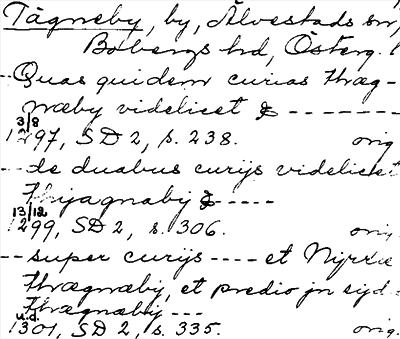 Tägneby, by, Älvestads sn,
Bobergs hd, Österg.
-- Quas quidem curias thræg-
næby videlicet & -------
3/8
1297, SD 2, s. 238. orig
--- de duabus curijs videlicet
thijagnabij & ----
13/12
1299, SD 2, s. 306. orig.
-- super curijs ---- et Nyrræ
thrægnæby, et predio jn ejd=
thrægnæby ---
u.d.
1301, SD 2, s. 335. orig.